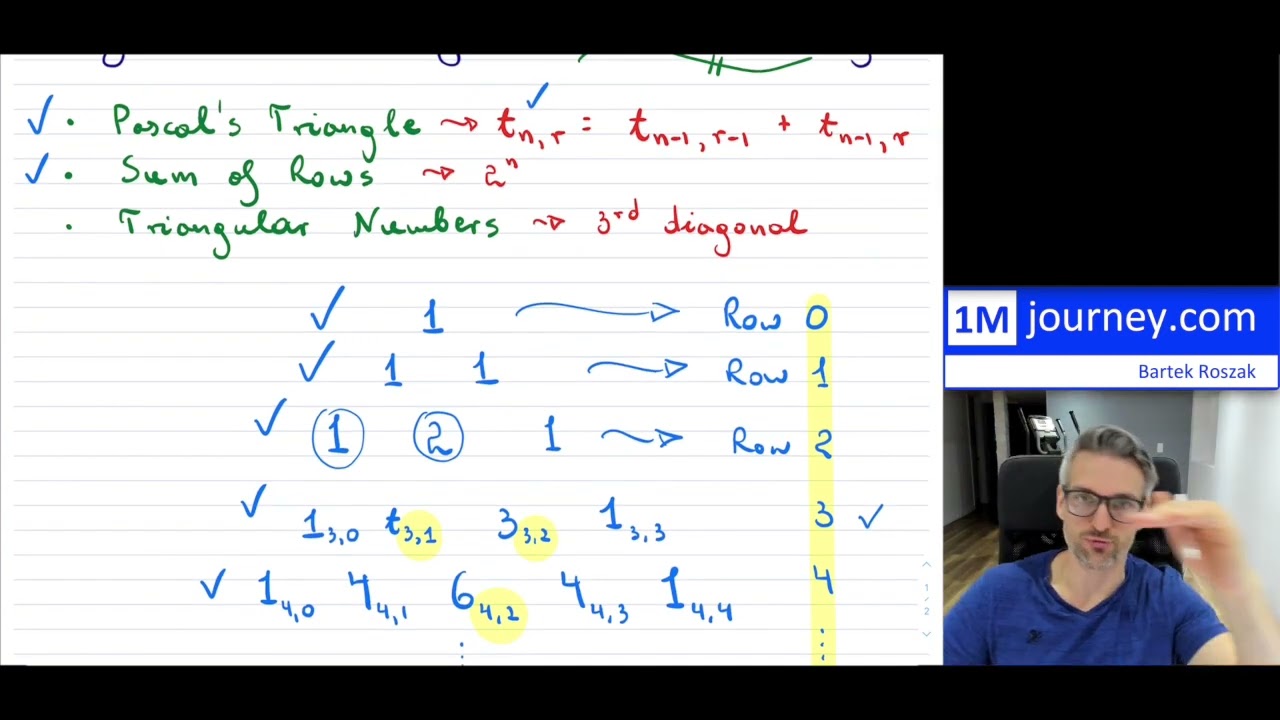 ✓ • Pascal's Triangle ⇝ tₙ,ᵣ ✓ = tₙ₋₁,ᵣ₋₁ + tₙ₋₁,ᵣ
✓ • Sum of Rows ⇝ 2ⁿ
• Triangular Numbers ⇝ 3rd diagonal
✓ 1 → Row 0
✓ 1 1 → Row 1
✓ 1 2 1 → Row 2
✓ 1₃,₀ t₃,₁ 3₃,₂ 1₃,₃ 3 ✓
✓ 1₄,₀ 4₄,₁ 6₄,₂ 4₄,₃ 1₄,₄ 4
⋮ ⋮
1M journey.com
Bartek Roszak
1
2